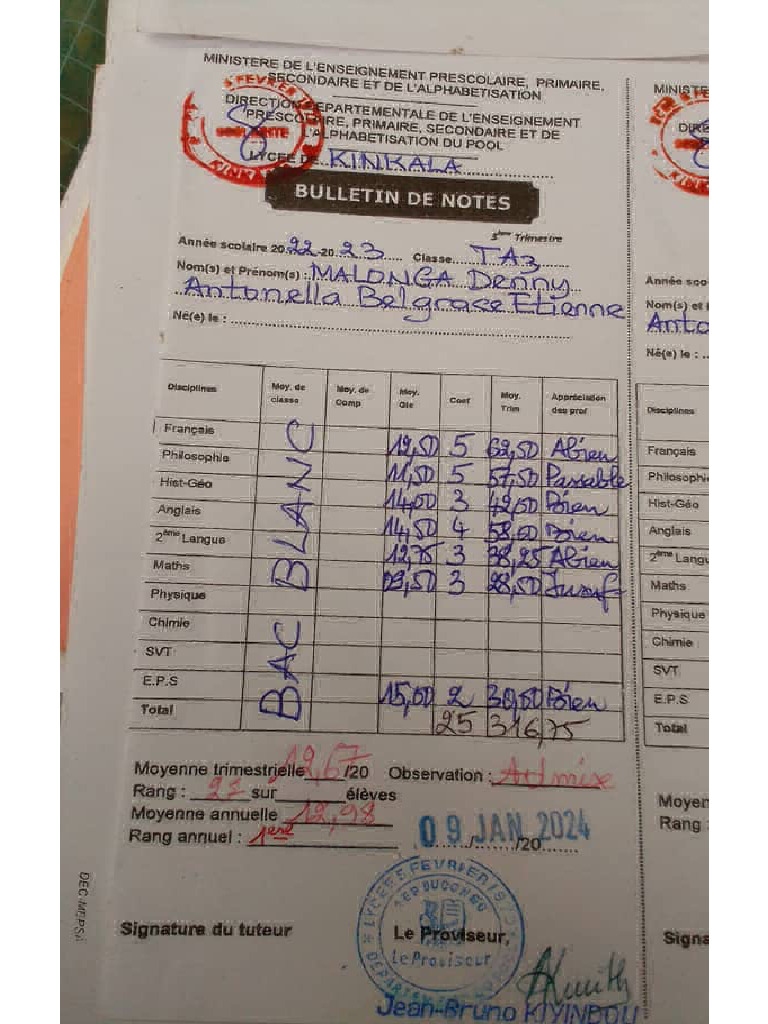 MINISTERE DE L'ENSEIGNEMENT PRESCOLAIRE, PRIMAIRE,
SECONDAIRE ET DE L'ALPHABETISATION
DIRECTION DEPARTEMENTALE DE L'ENSEIGNEMENT
PRESCOLAIRE, PRIMAIRE, SECONDAIRE ET DE
L'ALPHABETISATION DU POOL
LYCEE DE KINKALA
BULLETIN DE NOTES
3ème Trimestre
Année scolaire 2022-2023 Classe TA3
Nom(s) et Prénom(s) : MALONGA Denny
Antonella Belgrace Etienne
Né(e) le :
Disciplines Moy. de classe Moy. de Comp Moy. Gle Coef Moy. Trim Appréciation des prof
BAC BLANC
Français 12,50 5 62,50 Abien
Philosophie 11,50 5 57,50 Passable
Hist-Géo 14,00 3 42,00 Bien
Anglais 14,50 4 58,00 Bien
2ème Langue 12,75 3 38,25 Abien
Maths 09,50 3 28,50 Insuf
Physique
Chimie
SVT
E.P.S 15,00 2 30,00 Bien
Total 25 316,75
Moyenne trimestrielle 12,67 /20 Observation : Admise
Rang : sur élèves
Moyenne annuelle 12,98
Rang annuel : 1ère
09 JAN. 2024
/20
Signature du tuteur Le Proviseur,
LYCEE 5 FEVRIER 1979
Le Proviseur
Jean-Bruno KIYINDOU
DEC-MEPSA
MINISTE
Année sco
Nom(s) et
Anto
Né(e) le :
Disciplines
Français
Philosophi
Hist-Géo
Anglais
2ème Langu
Maths
Physique
Chimie
SVT
E.P.S
Total
Moyen
Rang :
Signa